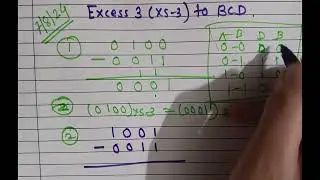 7/8/24
Excess 3 (XS-3) to BCD.
① 0 1 0 0
- 0 0 1 1
1 1
0 0 0 1
② (0100)XS-3 = (0001)
② 1 0 0 1
- 0 0 1 1
A-B D B
0-0 0
0-1
1-0
1-1